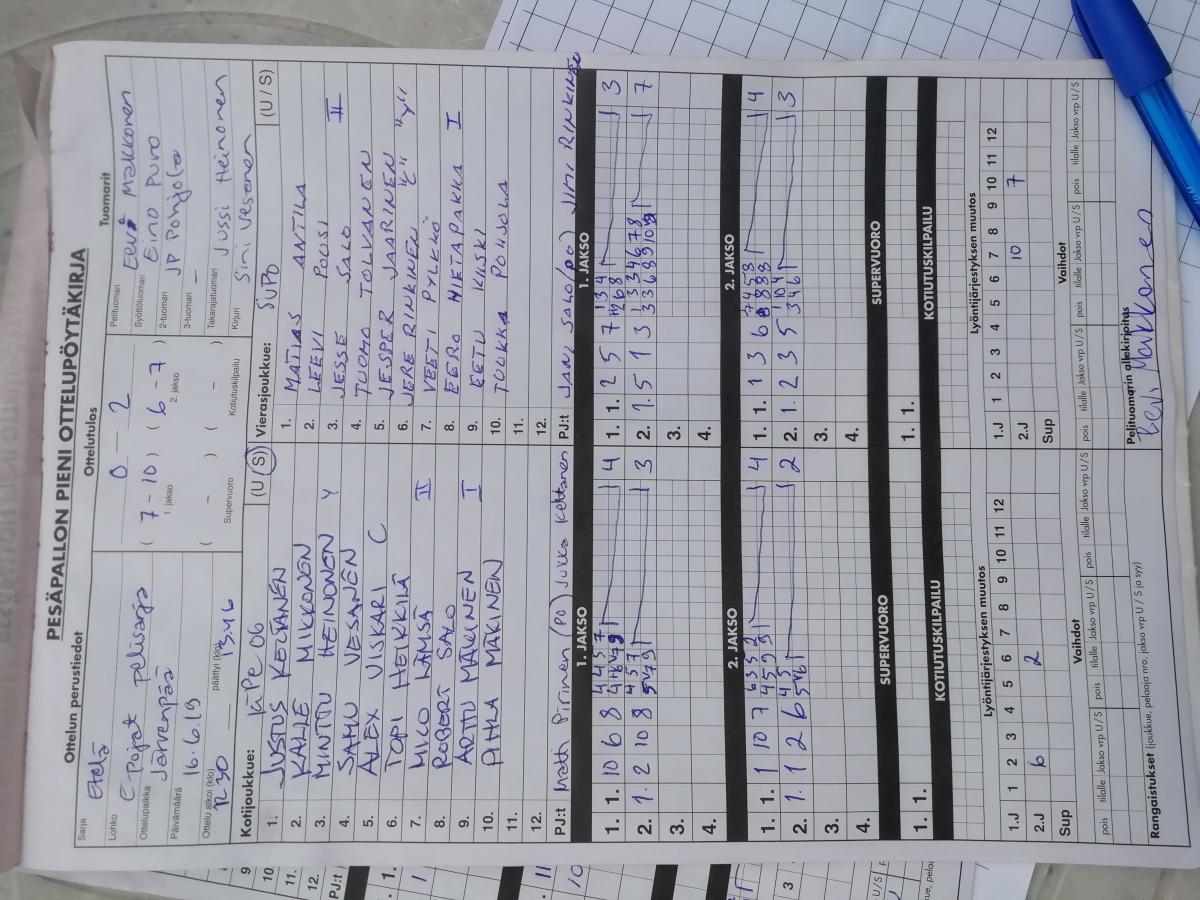 PESÄPALLON PIENI OTTELUPÖYTÄKIRJA
Ottelun perustiedot
Sarja
Etelä
Lohko
C-pojat pelisarja
Ottelupaikka
Järvenpää
Päivämäärä
16.6.19
Ottelu alkoi (klo)
12.30
päättyi (klo)
13.46
Ottelutulos
0 – 2
( 7 - 10 ) ( 6 - 7 )
1. jakso 2. jakso
( - ) ( - )
Supervuoro Kotiutuskilpailu
Tuomarit
Pelituomari Eevi Makkonen
Syöttötuomari Eino Puro
2-tuomari JP Pohjola
3-tuomari -
Takarajatuomari Jussi Heinonen
Kirjuri Sini Vesanen
Kotijoukkue: KiPe 06 (U / S)
1. JUSTUS KELTANEN
2. KALLE MIKKONEN
3. MINTTU HEINONEN Y
4. SAMU VESANEN
5. ALEX VISKARI C
6. TOPI HEIKKILÄ
7. MICO LÄMSÄ II
8. ROBERT SALO
9. AOTTU MÄKINEN I
10. PIHLA MÄKINEN
11.
12.
PJ:t Matti Pirinen (PO) Jukka Keltanen
Vierasjoukkue: SiiPo (U / S)
1. MATIAS ANTILA
2. LEEVI POOSI
3. JESSE SALO II
4. TUOMO TOLVANEN
5. JESPER JAARINEN
6. JERE RINKINEN "C" "Y"
7. VEETI PYLKKÖ
8. EERO HIETAPAKKA I
9. EETU KIISKI
10. TUUKKA POHJOLA
11.
12.
PJ:t JANI SALO (PO) JIMI RINKINEN
1. JAKSO 1. JAKSO
1. 1. 10 6 8 4
2. 1. 2 10 8 3
3.
4.
1. 1. 2 5 7 3
2. 1. 5 1 3 7
3.
4.
2. JAKSO 2. JAKSO
1. 1. 1 10 7 4
2. 1. 1 2 6 2
3.
4.
1. 1. 1 3 6 4
2. 1. 2 3 5 3
3.
4.
SUPERVUORO SUPERVUORO
1. 1.
1. 1.
KOTIUTUSKILPAILU KOTIUTUSKILPAILU
Lyöntijärjestyksen muutos
1.J 1 2 3 4 5 6 7 8 9 10 11 12
2.J 6 2
Sup
Lyöntijärjestyksen muutos
1.J 1 2 3 4 5 6 7 8 9 10 11 12
2.J 10 7
Sup
Vaihdot
pois tilalle Jakso vrp U / S pois tilalle Jakso vrp U / S pois tilalle Jakso vrp U / S
Vaihdot
pois tilalle Jakso vrp U / S pois tilalle Jakso vrp U / S pois tilalle Jakso vrp U / S
Rangaistukset (joukkue, pelaaja nro, jakso vrp U / S ja syy)
Pelituomarin allekirjoitus
Eevi Makkonen